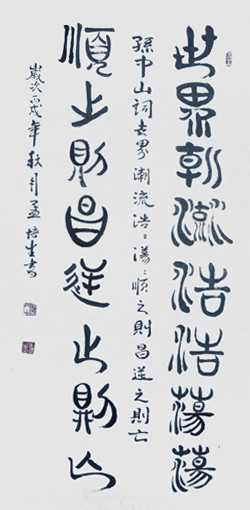 世界潮流浩浩蕩蕩
孫中山詞世界潮流浩〻湯〻順之則昌逆之則亡
順之則昌逆之則亡
歲次丙戌年秋月孟培生書